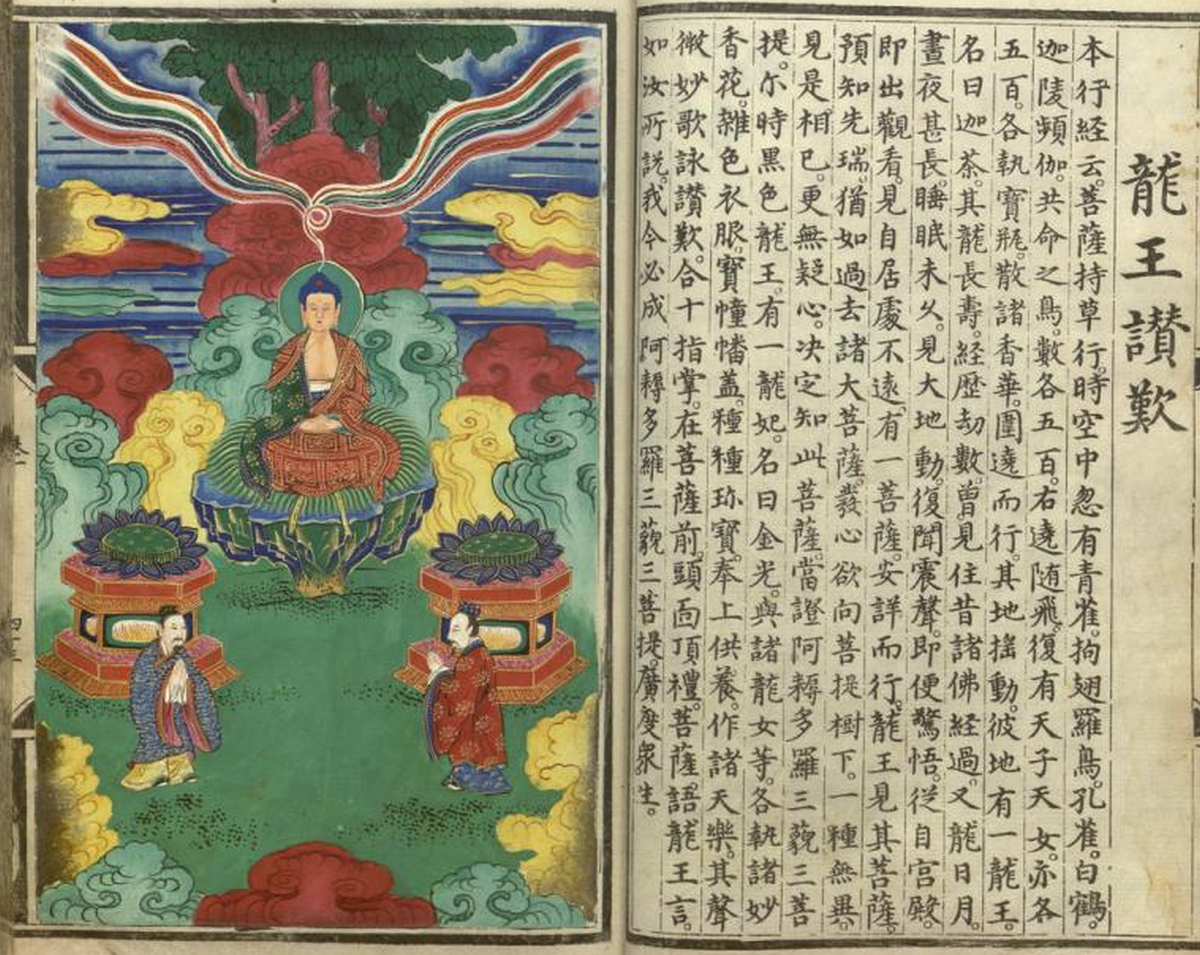 龍王讃歎
本行経云。菩薩持草行。時空中忽有青雀。拘翅羅鳥。孔雀。白鶴。
迦陵頻伽。共命之鳥。數各五百。右遶随飛。復有天子天女。亦各
五百。各執寶瓶。散諸香華。圍遶而行。其地摇動。彼地有一龍王。
名曰迦茶。其龍長壽。経歴劫數。曽見往昔諸佛経過。又龍日月。
晝夜甚長。睡眠未久。見大地動。復聞震聲。即便驚悟。從自宫殿。
即出觀看。見自居處不遠。有一菩薩。安詳而行。龍王見其菩薩。
預知先瑞。猶如過去諸大菩薩。發心欲向菩提樹下。一種無異。
見是相已。更無疑心。决定知此菩薩。當證阿耨多羅三藐三菩
提。尔時黑色龍王。有一龍妃。名曰金光。與諸龍女等。各執諸妙
香花。雜色衣服。寶幢幡盖。種種珎寶。奉上供養。作諸天樂。其聲
微妙歌詠讃歎。合十指掌。在菩薩前。頭靣頂禮。菩薩語龍王言。
如汝所説。我今必成阿耨多羅三藐三菩提。廣度衆生。